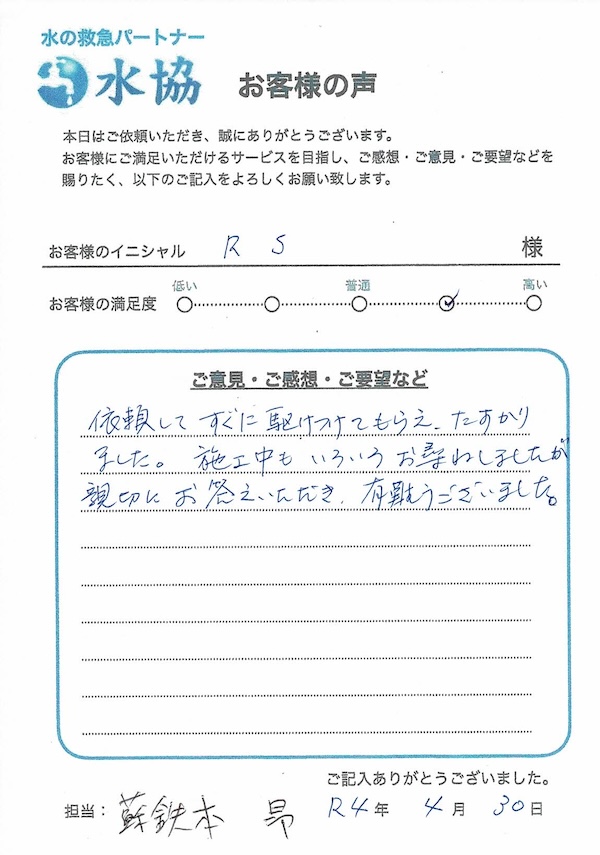 水の救急パートナー
水協 お客様の声
本日はご依頼いただき、誠にありがとうございます。
お客様にご満足いただけるサービスを目指し、ご感想・ご意見・ご要望などを
賜りたく、以下のご記入をよろしくお願い致します。
お客様のイニシャル R S 様
低い 普通 高い
お客様の満足度
ご意見・ご感想・ご要望など
依頼して すぐに駆けつけてもらえ、たすかり
ました。施工中も いろいろ お尋ねしましたが
親切に お答えいただき、有難うございました。
ご記入ありがとうございました。
担当: 蘇鉄本 昂 R4年 4月 30日